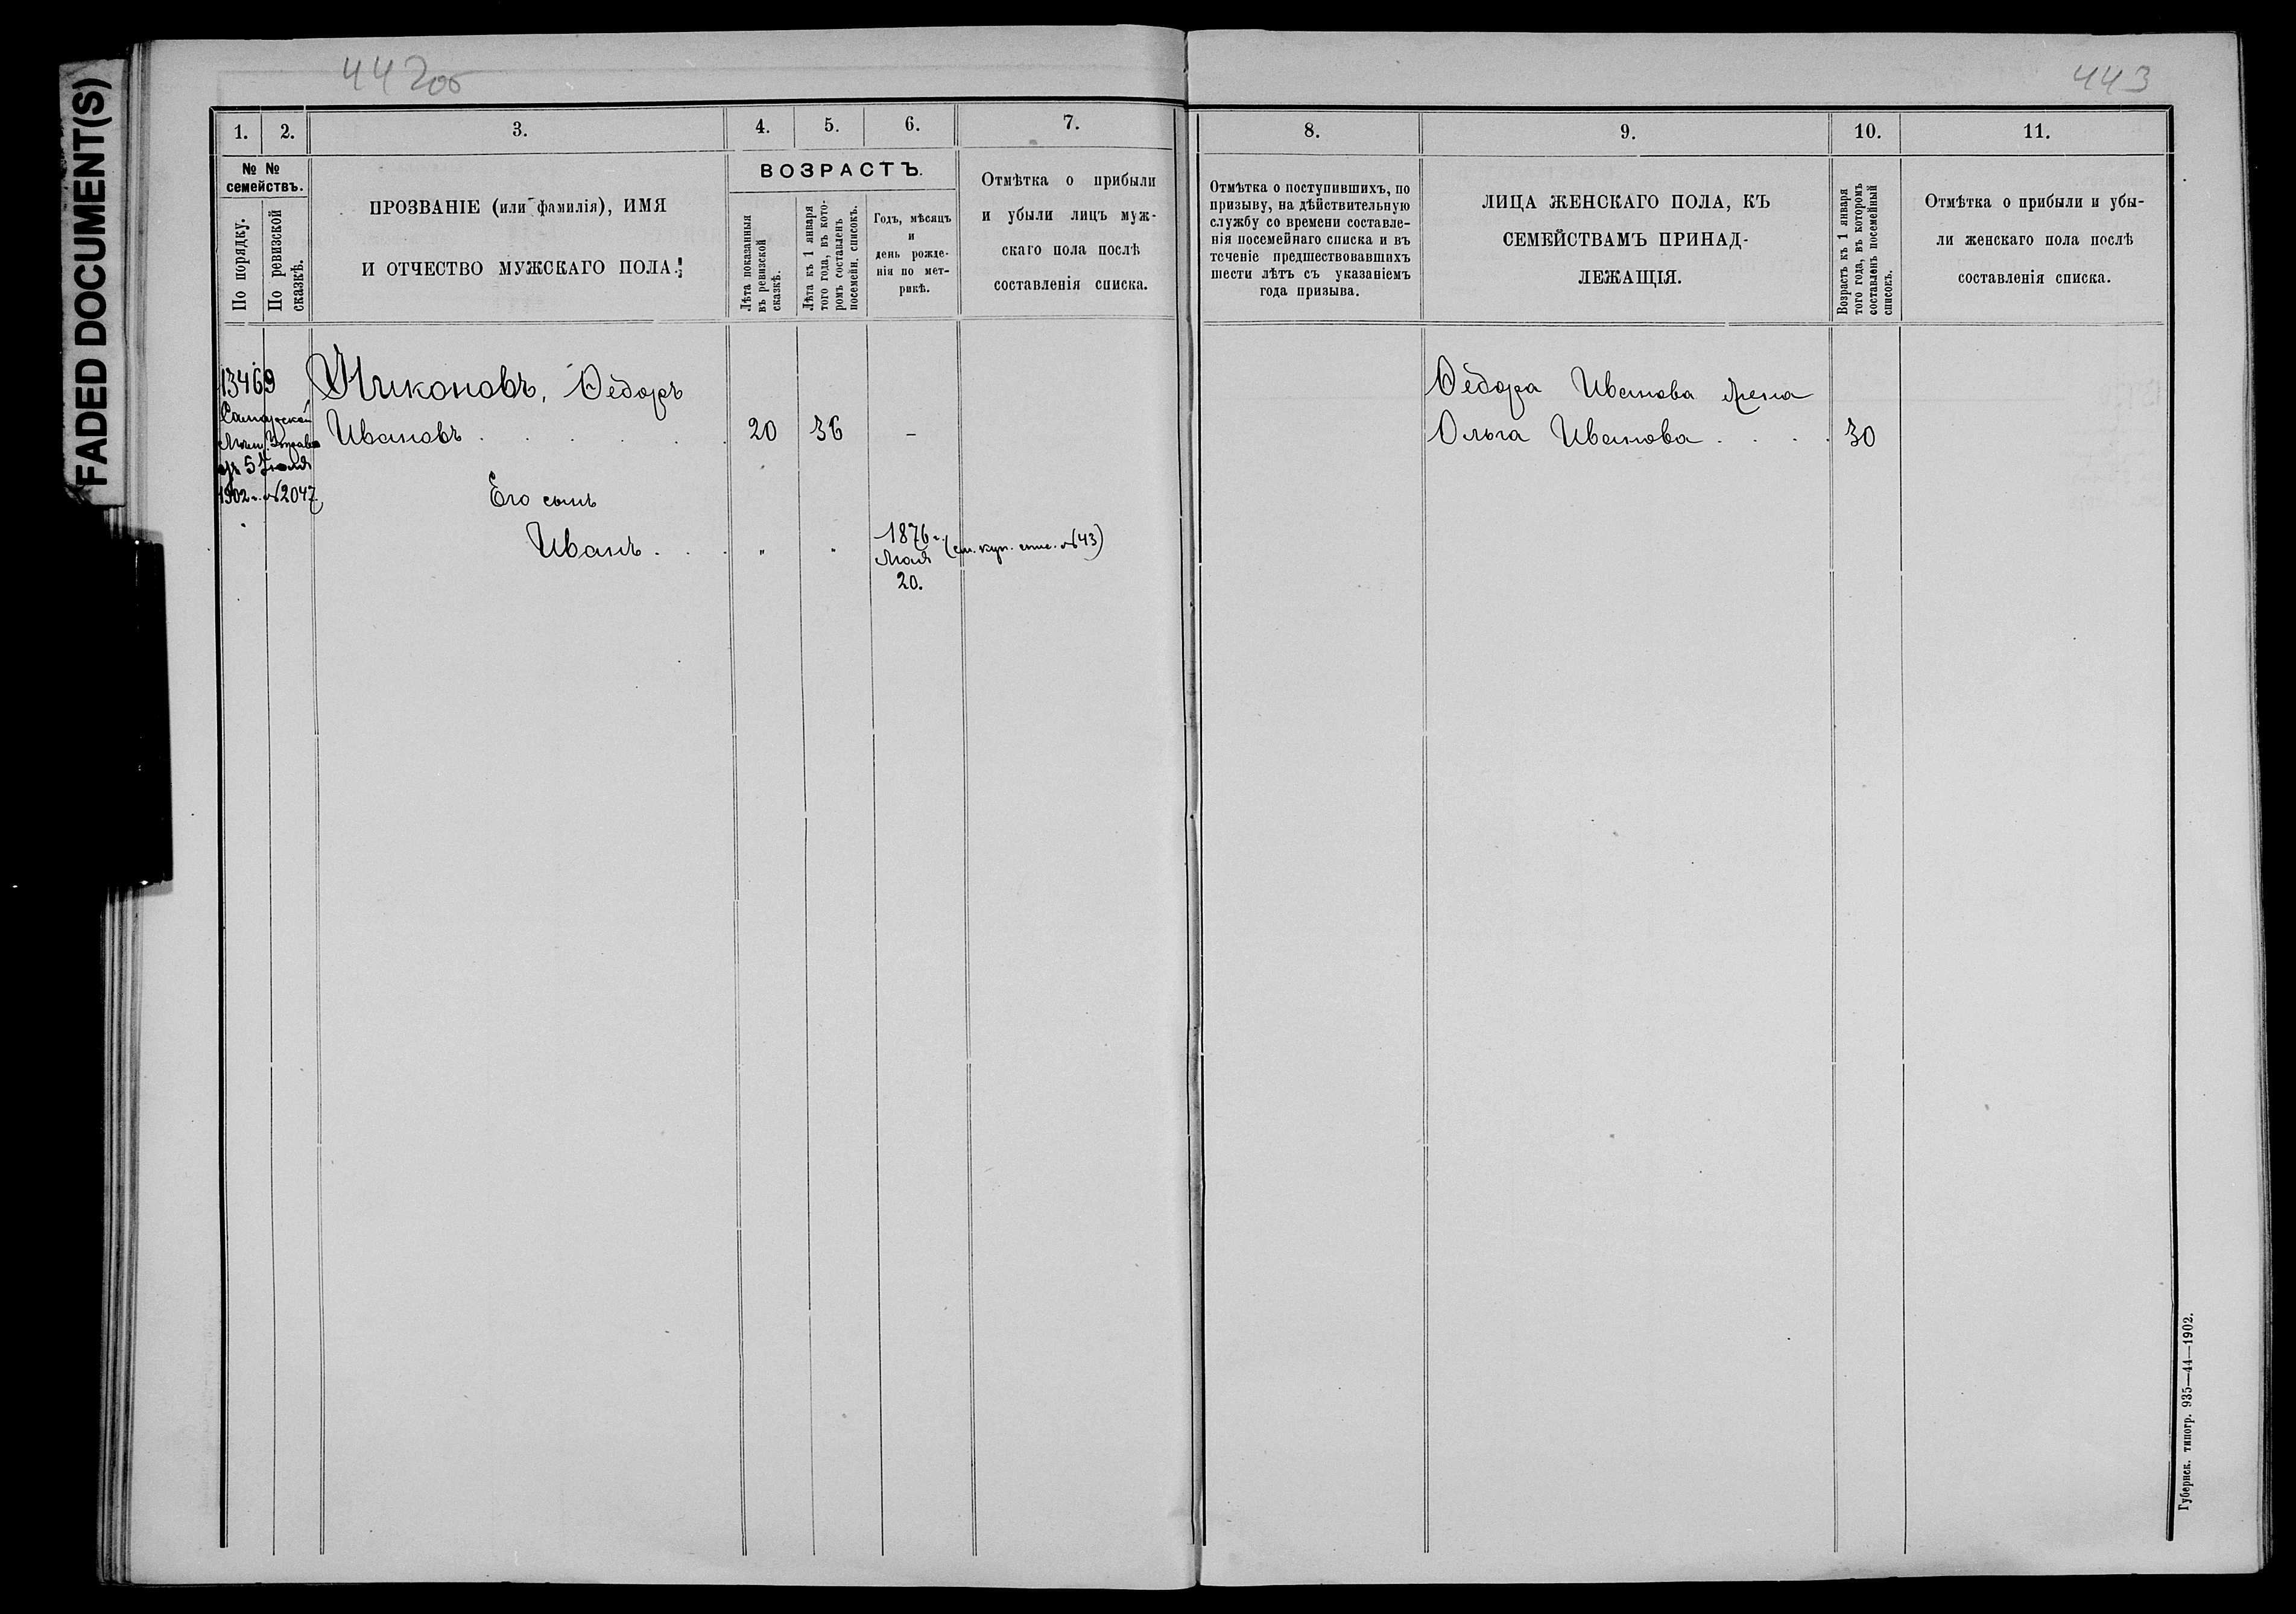 FADED DOCUMENT(S)
442об
443
1.
2.
3.
4.
5.
6.
7.
8.
9.
10.
11.
№ №
семействъ.
По порядку.
По ревизской
сказкѣ.
ПРОЗВАНІЕ (или фамилія), ИМЯ
И ОТЧЕСТВО МУЖСКАГО ПОЛА.
ВОЗРАСТЪ.
Лѣта показанныя
въ ревизской
сказкѣ.
Лѣта къ 1 января
того года, въ кото-
ромъ составленъ
посемейн. списокъ.
Годъ, мѣсяцъ
и
день рожде-
нія по мет-
рикѣ.
Отмѣтка о прибыли
и убыли лицъ муж-
скаго пола послѣ
составленія списка.
Отмѣтка о поступившихъ, по
призыву, на дѣйствительную
службу со времени составле-
нія посемейнаго списка и въ
теченіе предшествовавшихъ
шести лѣтъ съ указаніемъ
года призыва.
ЛИЦА ЖЕНСКАГО ПОЛА, КЪ
СЕМЕЙСТВАМЪ ПРИНАД-
ЛЕЖАЩІЯ.
Возрастъ къ 1 января
того года, въ которомъ
составленъ посемейный
списокъ.
Отмѣтка о прибыли и убы-
ли женскаго пола послѣ
составленія списка.
13469
Самарской
Мѣщ. Управы
5 Іюля
1902 г. №2047
Никоновъ, Ѳедоръ
Ивановъ . . . . . 20 36 –
Его сынъ
Иванъ . . . „ „ 1876 г.
Мая
20.
(см. куп. спис. №43)
Ѳедора Иванова жена
Ольга Иванова . . . . 30
Губернск. типогр. 935—44—1902.